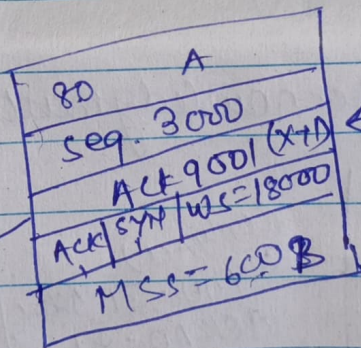 80 A
seq. 3000
ACK 9001 (X+1)
ACK SYN WS=18000
MSS=600 B